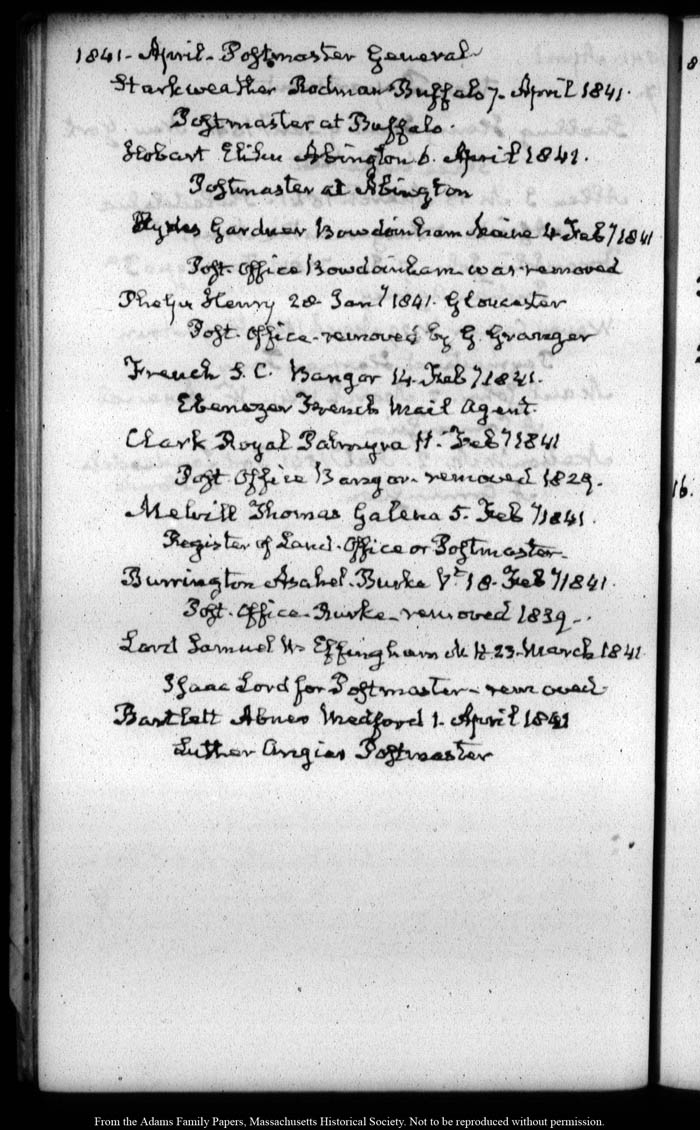 1841 - April - Postmaster General
Starkweather Rodman Buffalo 7. April 1841.
Postmaster at Buffalo.
Hobart Elihu Abington 6. April 1841.
Postmaster at Abington
Gardner Bowdoinham Maine 4 Feby 1841
Post-Office Bowdoinham was removed
Phelps Henry 28 Jany 1841. Gloucester
Post-Office - removed by G. Granger
French S. C. Bangor 14. Feby 1841.
Ebenezer French Mail Agent.
Clark Royal Palmyra 11. Feby 1841
Post Office Bangor - removed 1829.
Melvill Thomas Galena 5. Feby 1841.
Register of Land-Office or Postmaster -
Burrington Asahel. Burke Vt 18. Feby 1841.
Post-Office - Burke - removed 1839 -
Lord Samuel W. Effingham N. H 23. March 1841
Isaac Lord for Postmaster - removed
Bartlett Abner Medford 1. April 1841
Luther Angier Postmaster
18
16.
From the Adams Family Papers, Massachusetts Historical Society. Not to be reproduced without permission.